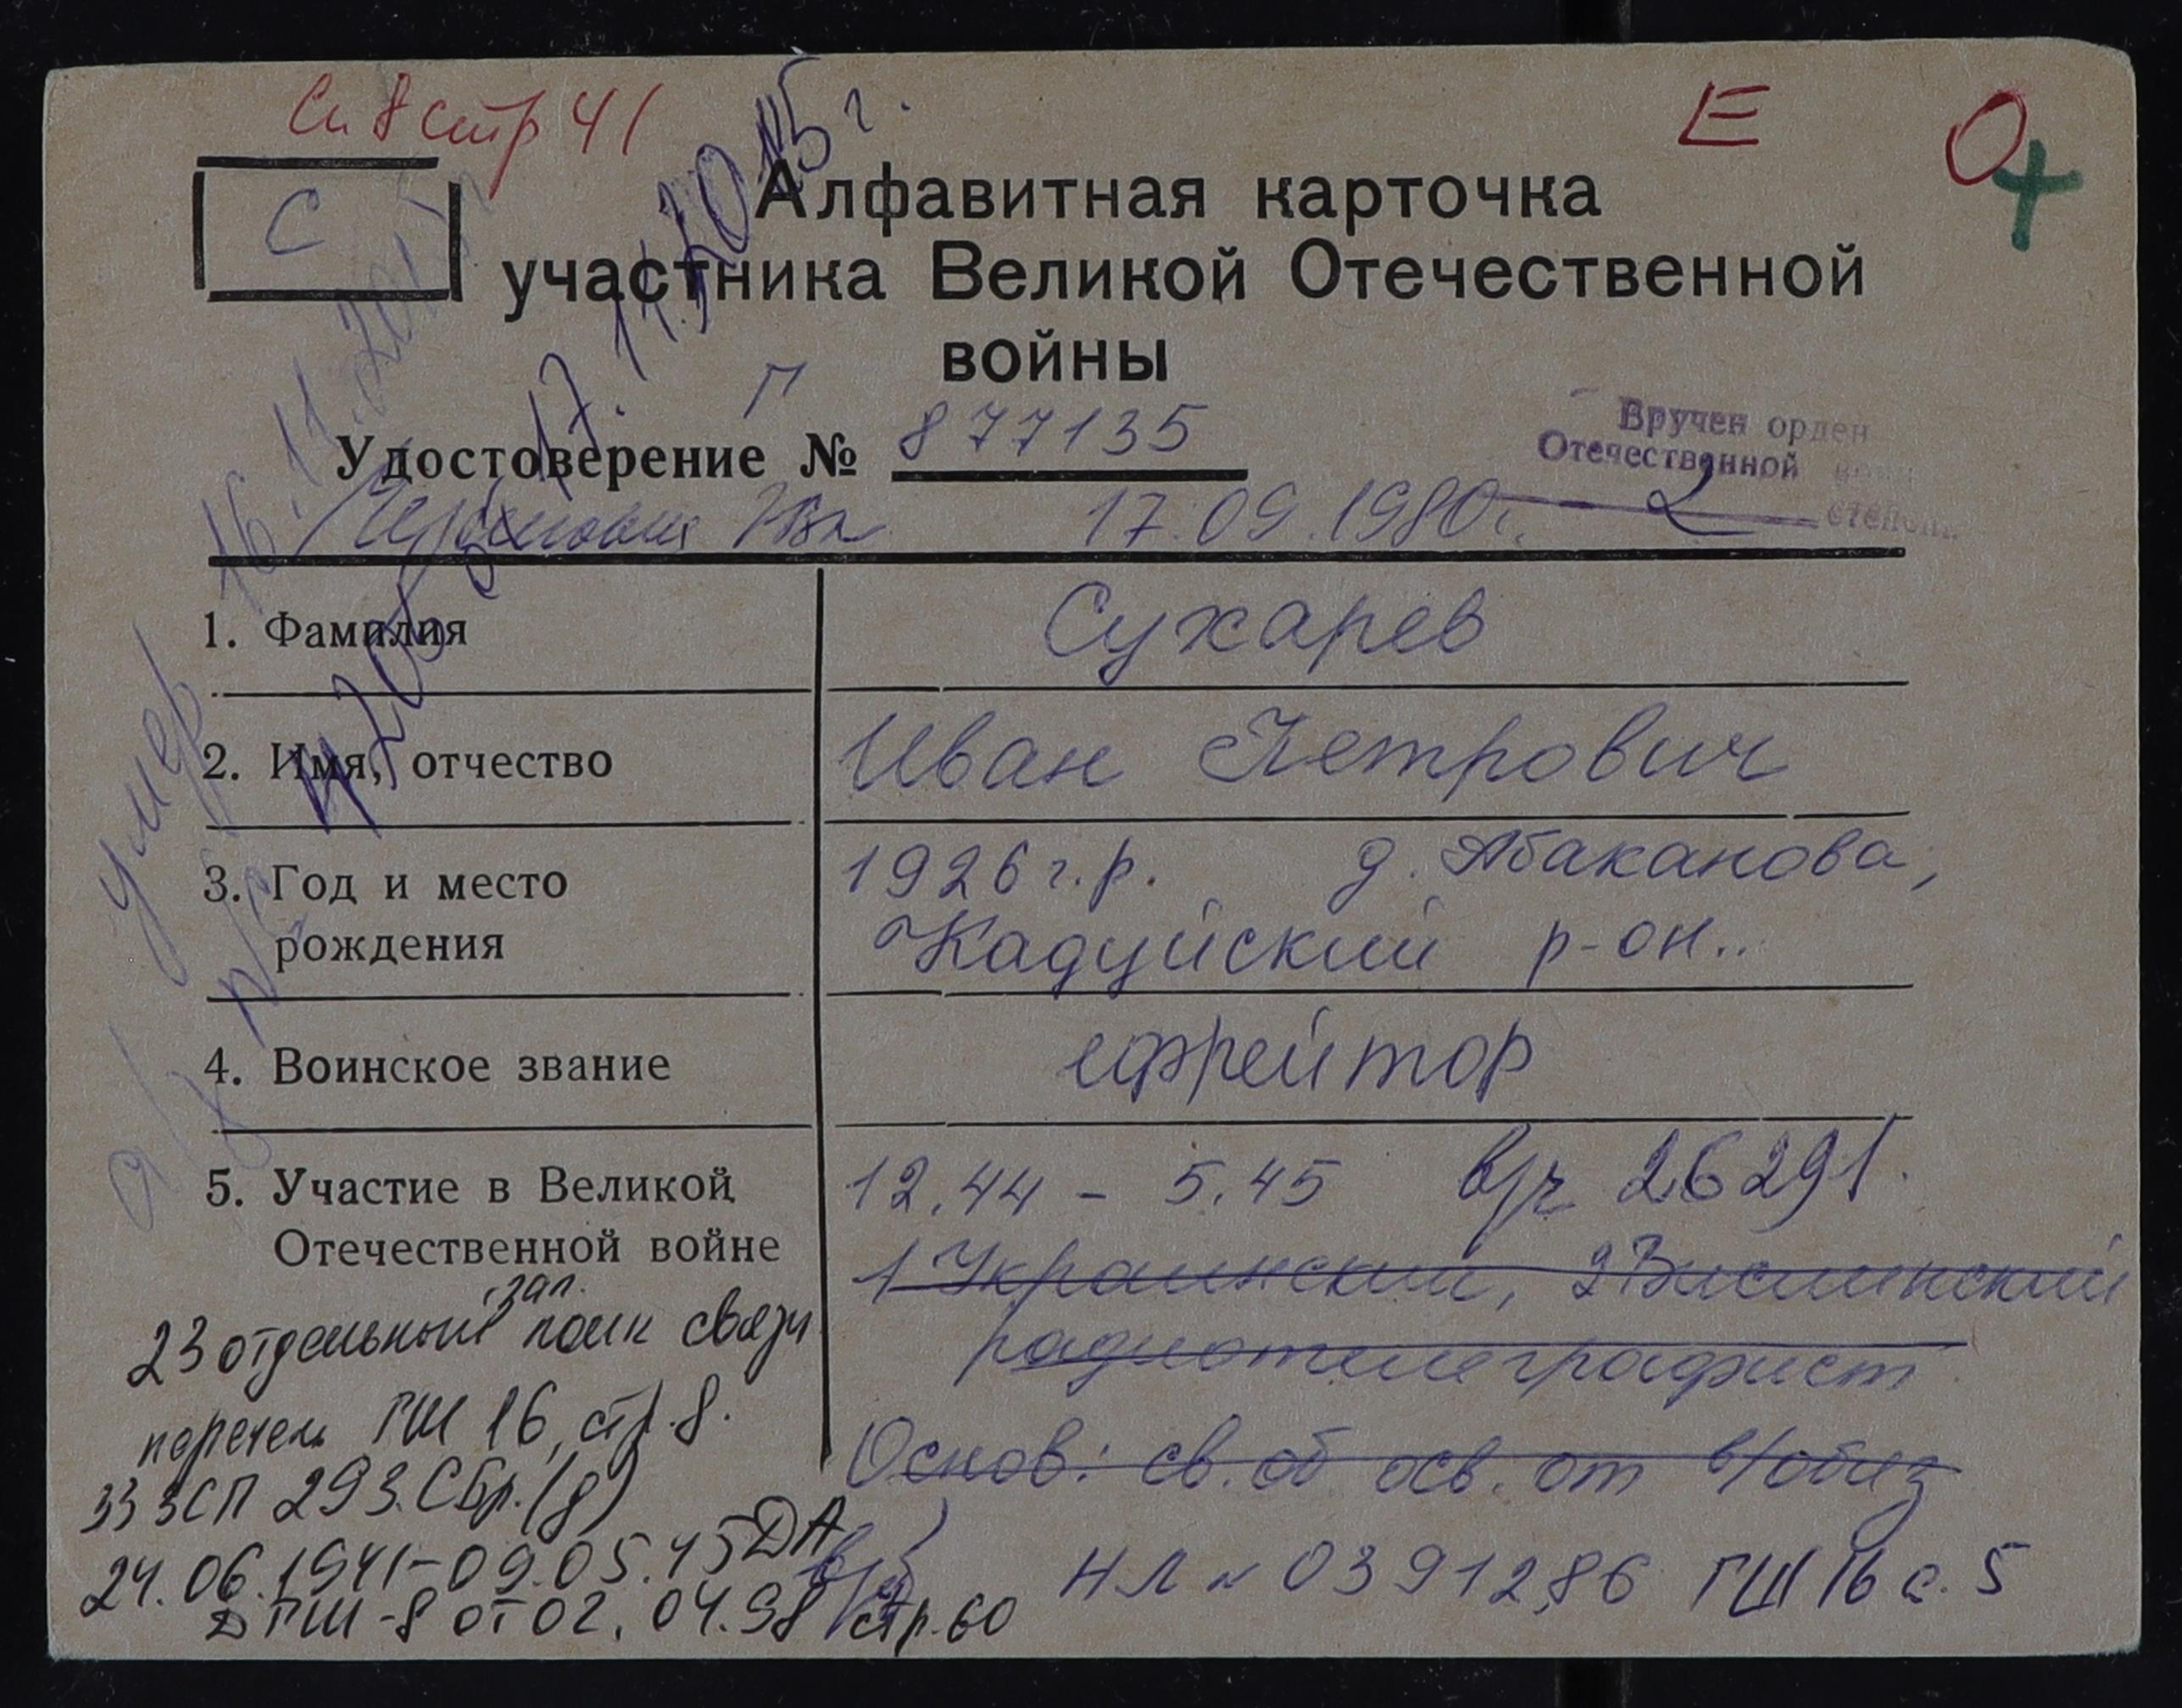 Сп 8 стр 41
Е О
С
Алфавитная карточка
участника Великой Отечественной
войны
Г
Удостоверение № 877135
Вручен орден
Отечественной войны
2 степени
17.09.1980г.
умер 16.11.2015г
17.11.2015г.
1. Фамилия Сухарев
2. Имя, отчество Иван Петрович
3. Год и место рождения 1926 г.р. д. Абаканова,
Кадуйский р-он..
4. Воинское звание ефрейтор
5. Участие в Великой Отечественной войне 12.44 - 5.45 в/ч 26291.
1 Украинский, 2 Вислинский
радиотелеграфист
Основ: св. об осв. от в/обяз
НЛ № 0391286 ГШ 16 с. 5
23 отдельный зап. полк связи
перечень ГШ 16, стр. 8.
33 ЗСП 293. СБр. (д)
24.06.1941-09.05.45 ДА
ДГШ-8 от 02.04.98 стр. 60